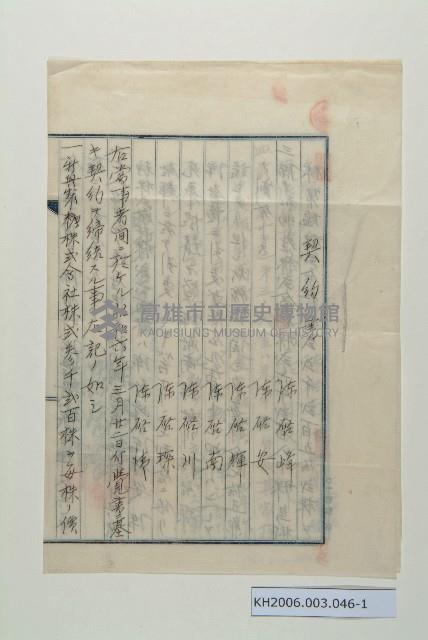 契約書
陳啓峰
陳啓安
陳啓輝
陳啓南
陳啓川
陳啓琛
陳啓清
右當事者間ニ於ケル昭和六年三月廿二日付覚書ニ基
キ契約ヲ締結スル事左記ノ如シ
株式会社株式参千弐百株ヲ毎株ノ價
高雄市立歷史博物館
KAOHSIUNG MUSEUM OF HISTORY
KH2006.003.046-1